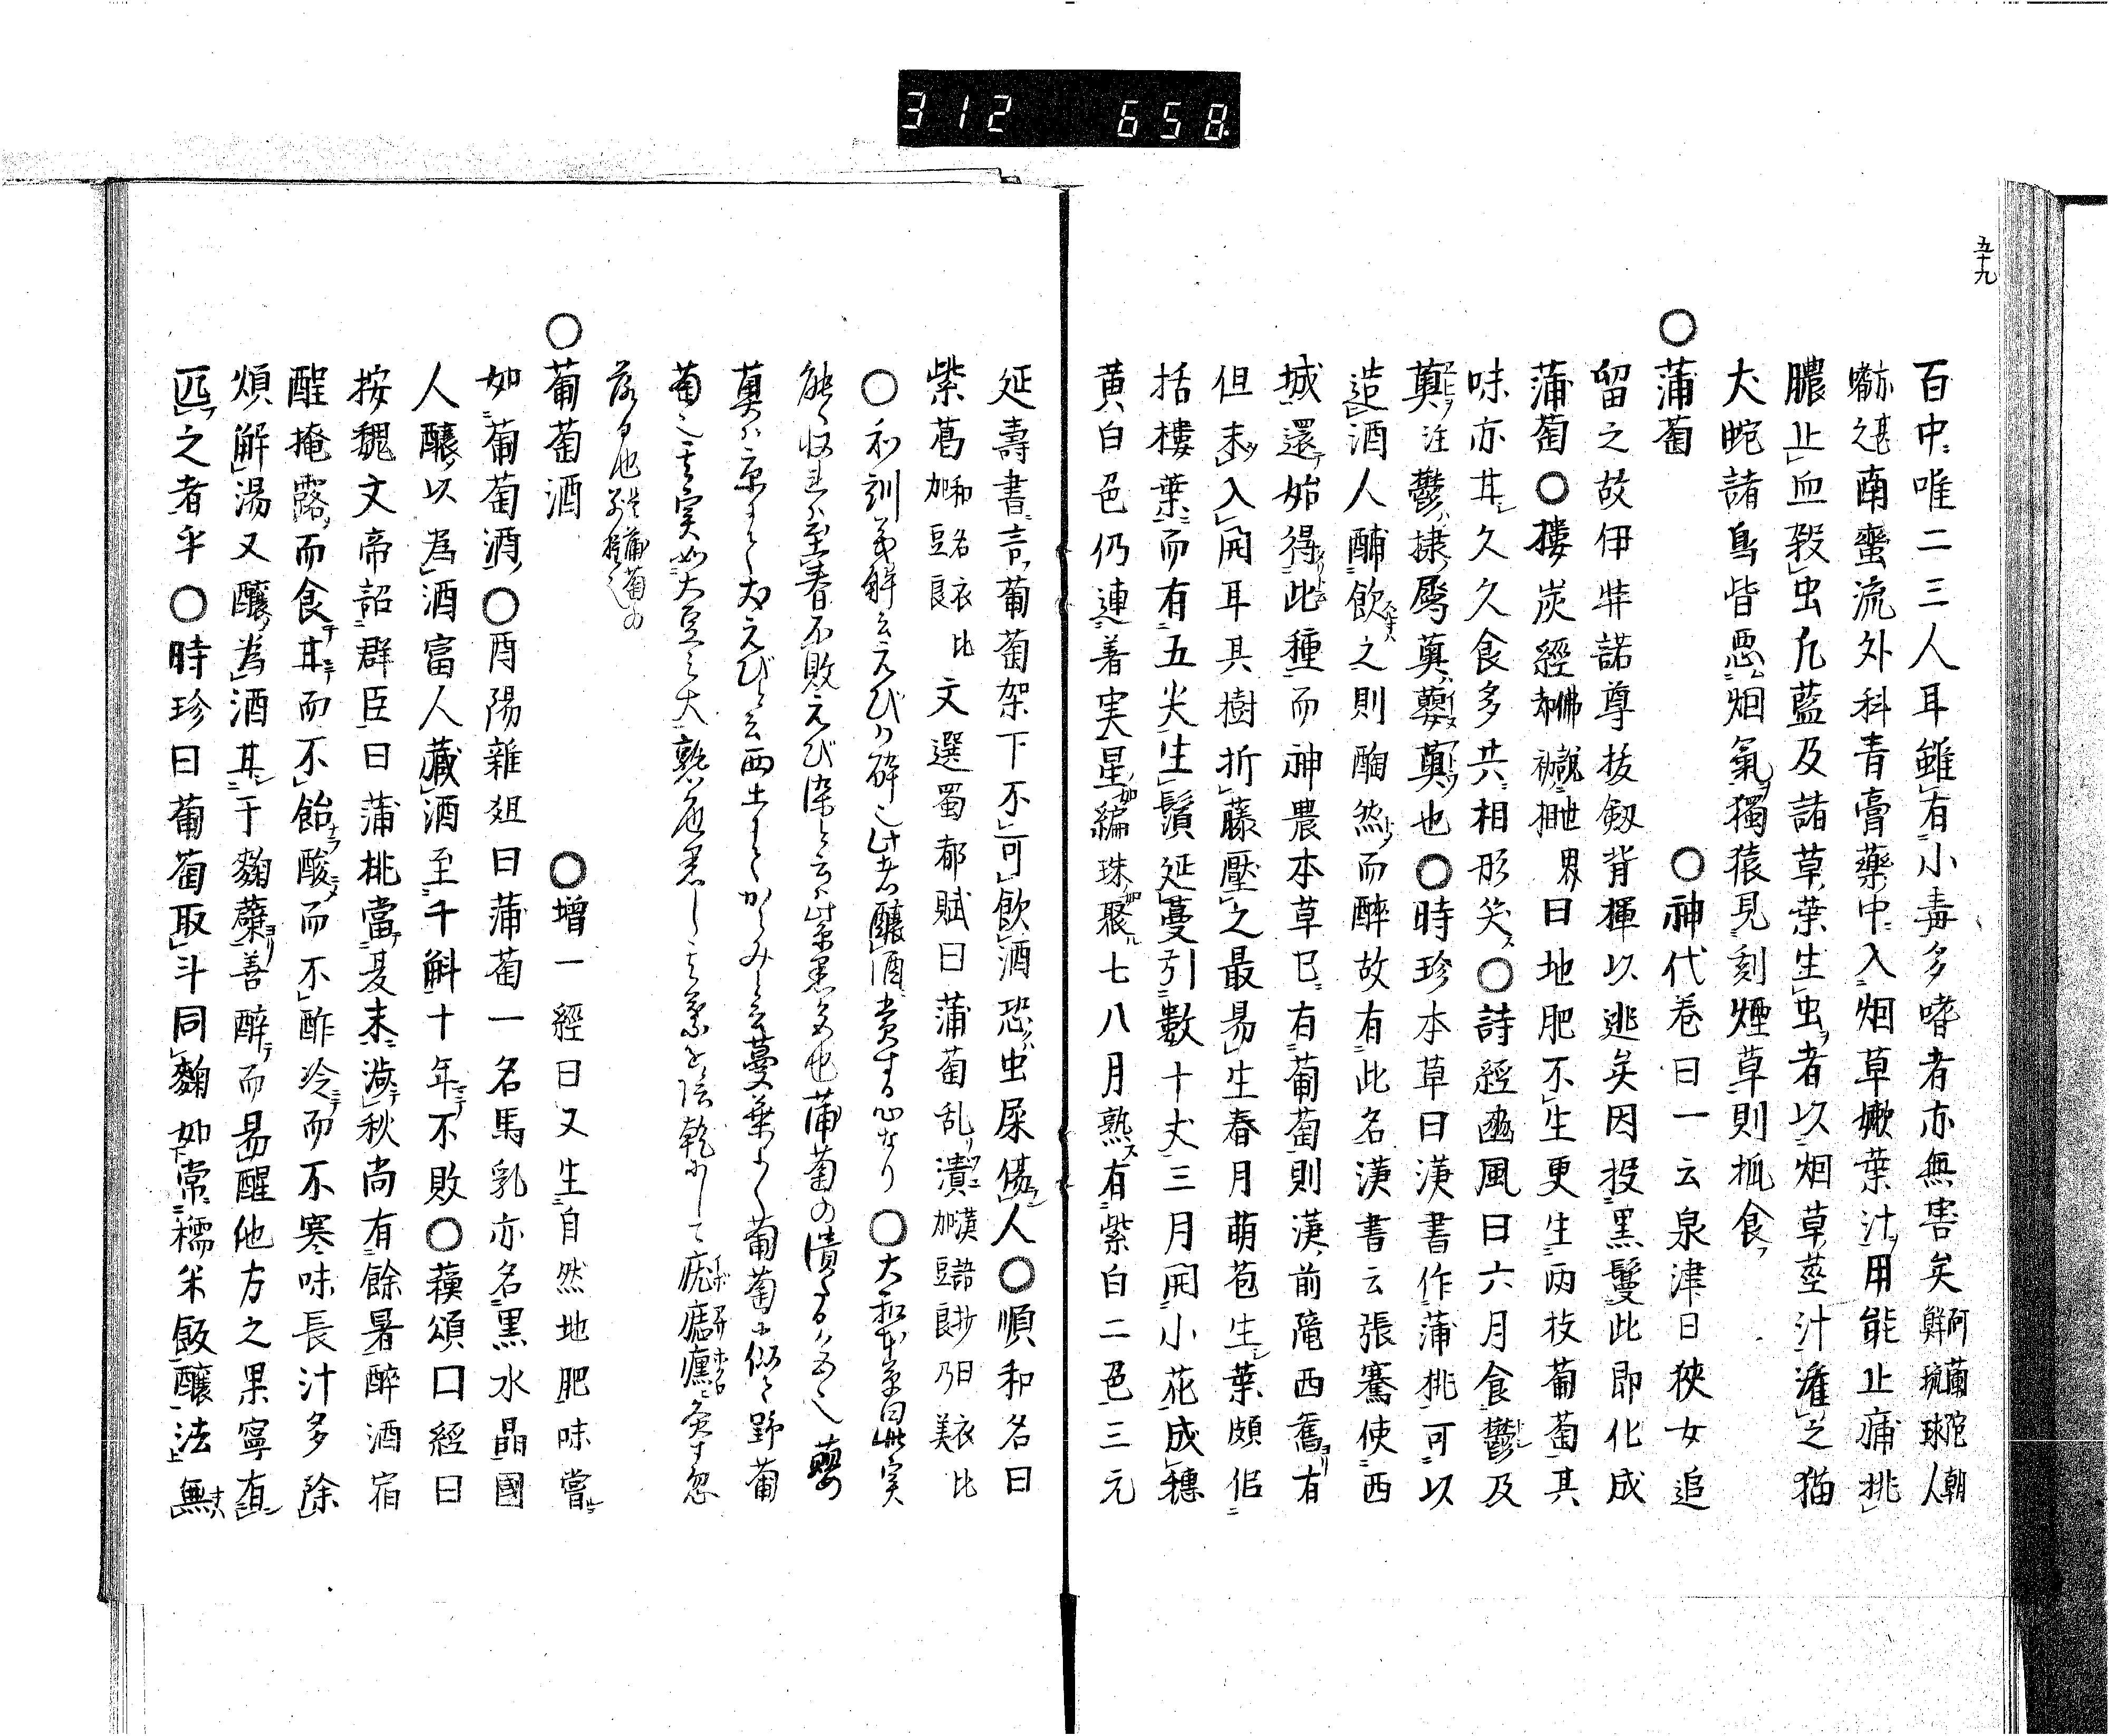 312 658
五十九
百中唯二三人耳雖有小毒多嗜者亦無害矣阿蘭陀朝鮮琉球人
亦甚嗜之南蛮流外科青膏薬中入烟草嫩葉汁用能止痛挑
膿止血殺虫凡藍及諸草葉生虫者以烟草茎汁潅之猫
犬蛇諸鳥皆悪烟氣獨猿見刻煙草則抓食
○蒲萄　○神代巻曰一云泉津日狭女追
留之故伊弉諾尊抜劔背揮以逃矣因投黒鬘此即化成
蒲萄○樓炭經佛説世界曰地肥不生更生两枝葡萄其
味亦甘久久食多共相形笑○詩經豳風曰六月食鬱及
薁注鬱棣属薁蘡薁也○時珍本草曰漢書作蒲桃可以
造酒人酺飲之則酶然而醉故有此名漢書云張騫使西
域還始得此種而神農本草巳有葡萄則漢前隴西舊有
但未入関耳其樹折藤壓之最易生春月萌苞生葉頗佀
括樓葉而有五尖生鬚延蔓引數十丈三月開小花成穗
黄白色仍連着実星編珠聚七八月熟有紫白二色三元
延壽書言葡萄架下不可飲酒恐虫屎傷人○順和名曰
紫葛和名衣比加豆良文選蜀都賦曰蒲萄乱潰漢語抄曰衣比加豆良乃美
○和訓義解云えびハ醉也此者醸酒賞する心なり○大和本草曰此実
能く収れハ至春不敗えび染と云ハ此汁の色也蒲萄の
薁ハ京にてえびと云西土にてからみと云蔓葉よく葡萄に似る野葡
萄也其実如大豆之大熟色黒し其葉を陰乾にして疣痣㿈灸す忽
落る也
○葡萄酒　○増一經曰又生自然地肥味當
如葡萄酒○酉陽雜俎曰蒲萄一名馬乳亦名黒水晶國
人醸以為酒富人蔵酒至千斛十年不敗○蘓頌口經曰
按魏文帝詔群臣曰蒲桃當夏末渉秋尚有餘暑醉酒宿
酲掩露而食甘而不飴酸而不酢冷而不寒味長汁多除
煩解湯又醸為酒甘于麹糵善醉而易醒他方之果寧有
匹之者乎○時珍曰葡萄取斗同麹如常糯米飯醸法無